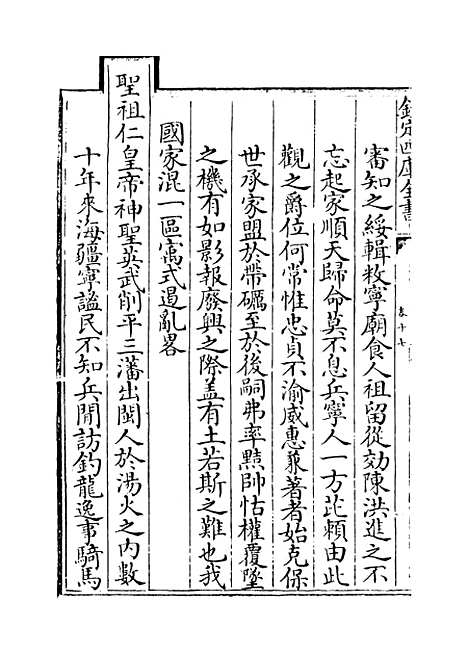 欽定四庫全書
卷十七
審知之綏輯敉寧廟食人祖留從効陳洪進之不
忘起家順天歸命莫不息兵寧人一方芘賴由此
觀之爵位何常惟忠貞不渝威惠蒹著者始克保
世承家盟於帶礪至於後嗣弗率黠帥怙權覆墜
之機有如影報廢興之際盖有土若斯之難也我
國家混一區㝢式遏亂畧
聖祖仁皇帝神聖英武削平三藩出閩人於湯火之内數
十年來海疆寧謐民不知兵閒訪釣龍逸事騎馬